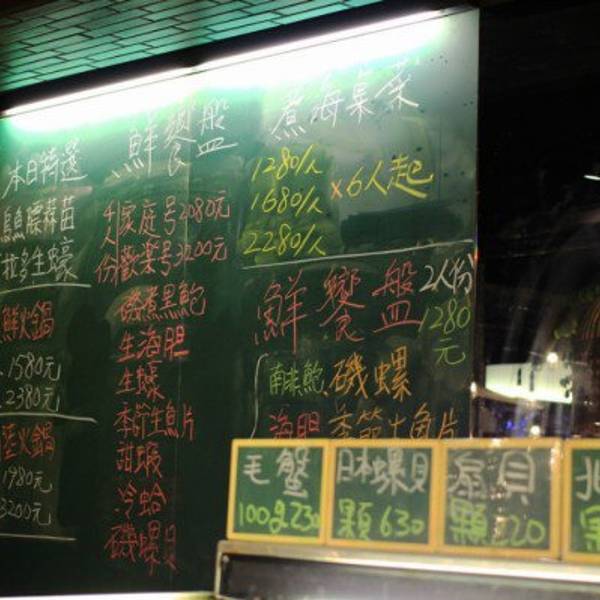 本日特選
烏魚腰蒜苗
拉多生蠔
鮮火鍋
1580元
2380元
火鍋
1980元
3200元
鮮饗盤
家庭号2080元
份歡楽号3200元
磯煮黒鮑
生海胆
生蠔
季節生魚片
甜蝦
冷蛤
磯螺貝
煮海菜
1280/人
1680/人 x6人起
2280/人
鮮饗盤 2人份
1280
元
南非鮑 磯螺
海胆 季節生魚片
毛蟹
100g230
日本螺貝
顆630
貝
顆220
北